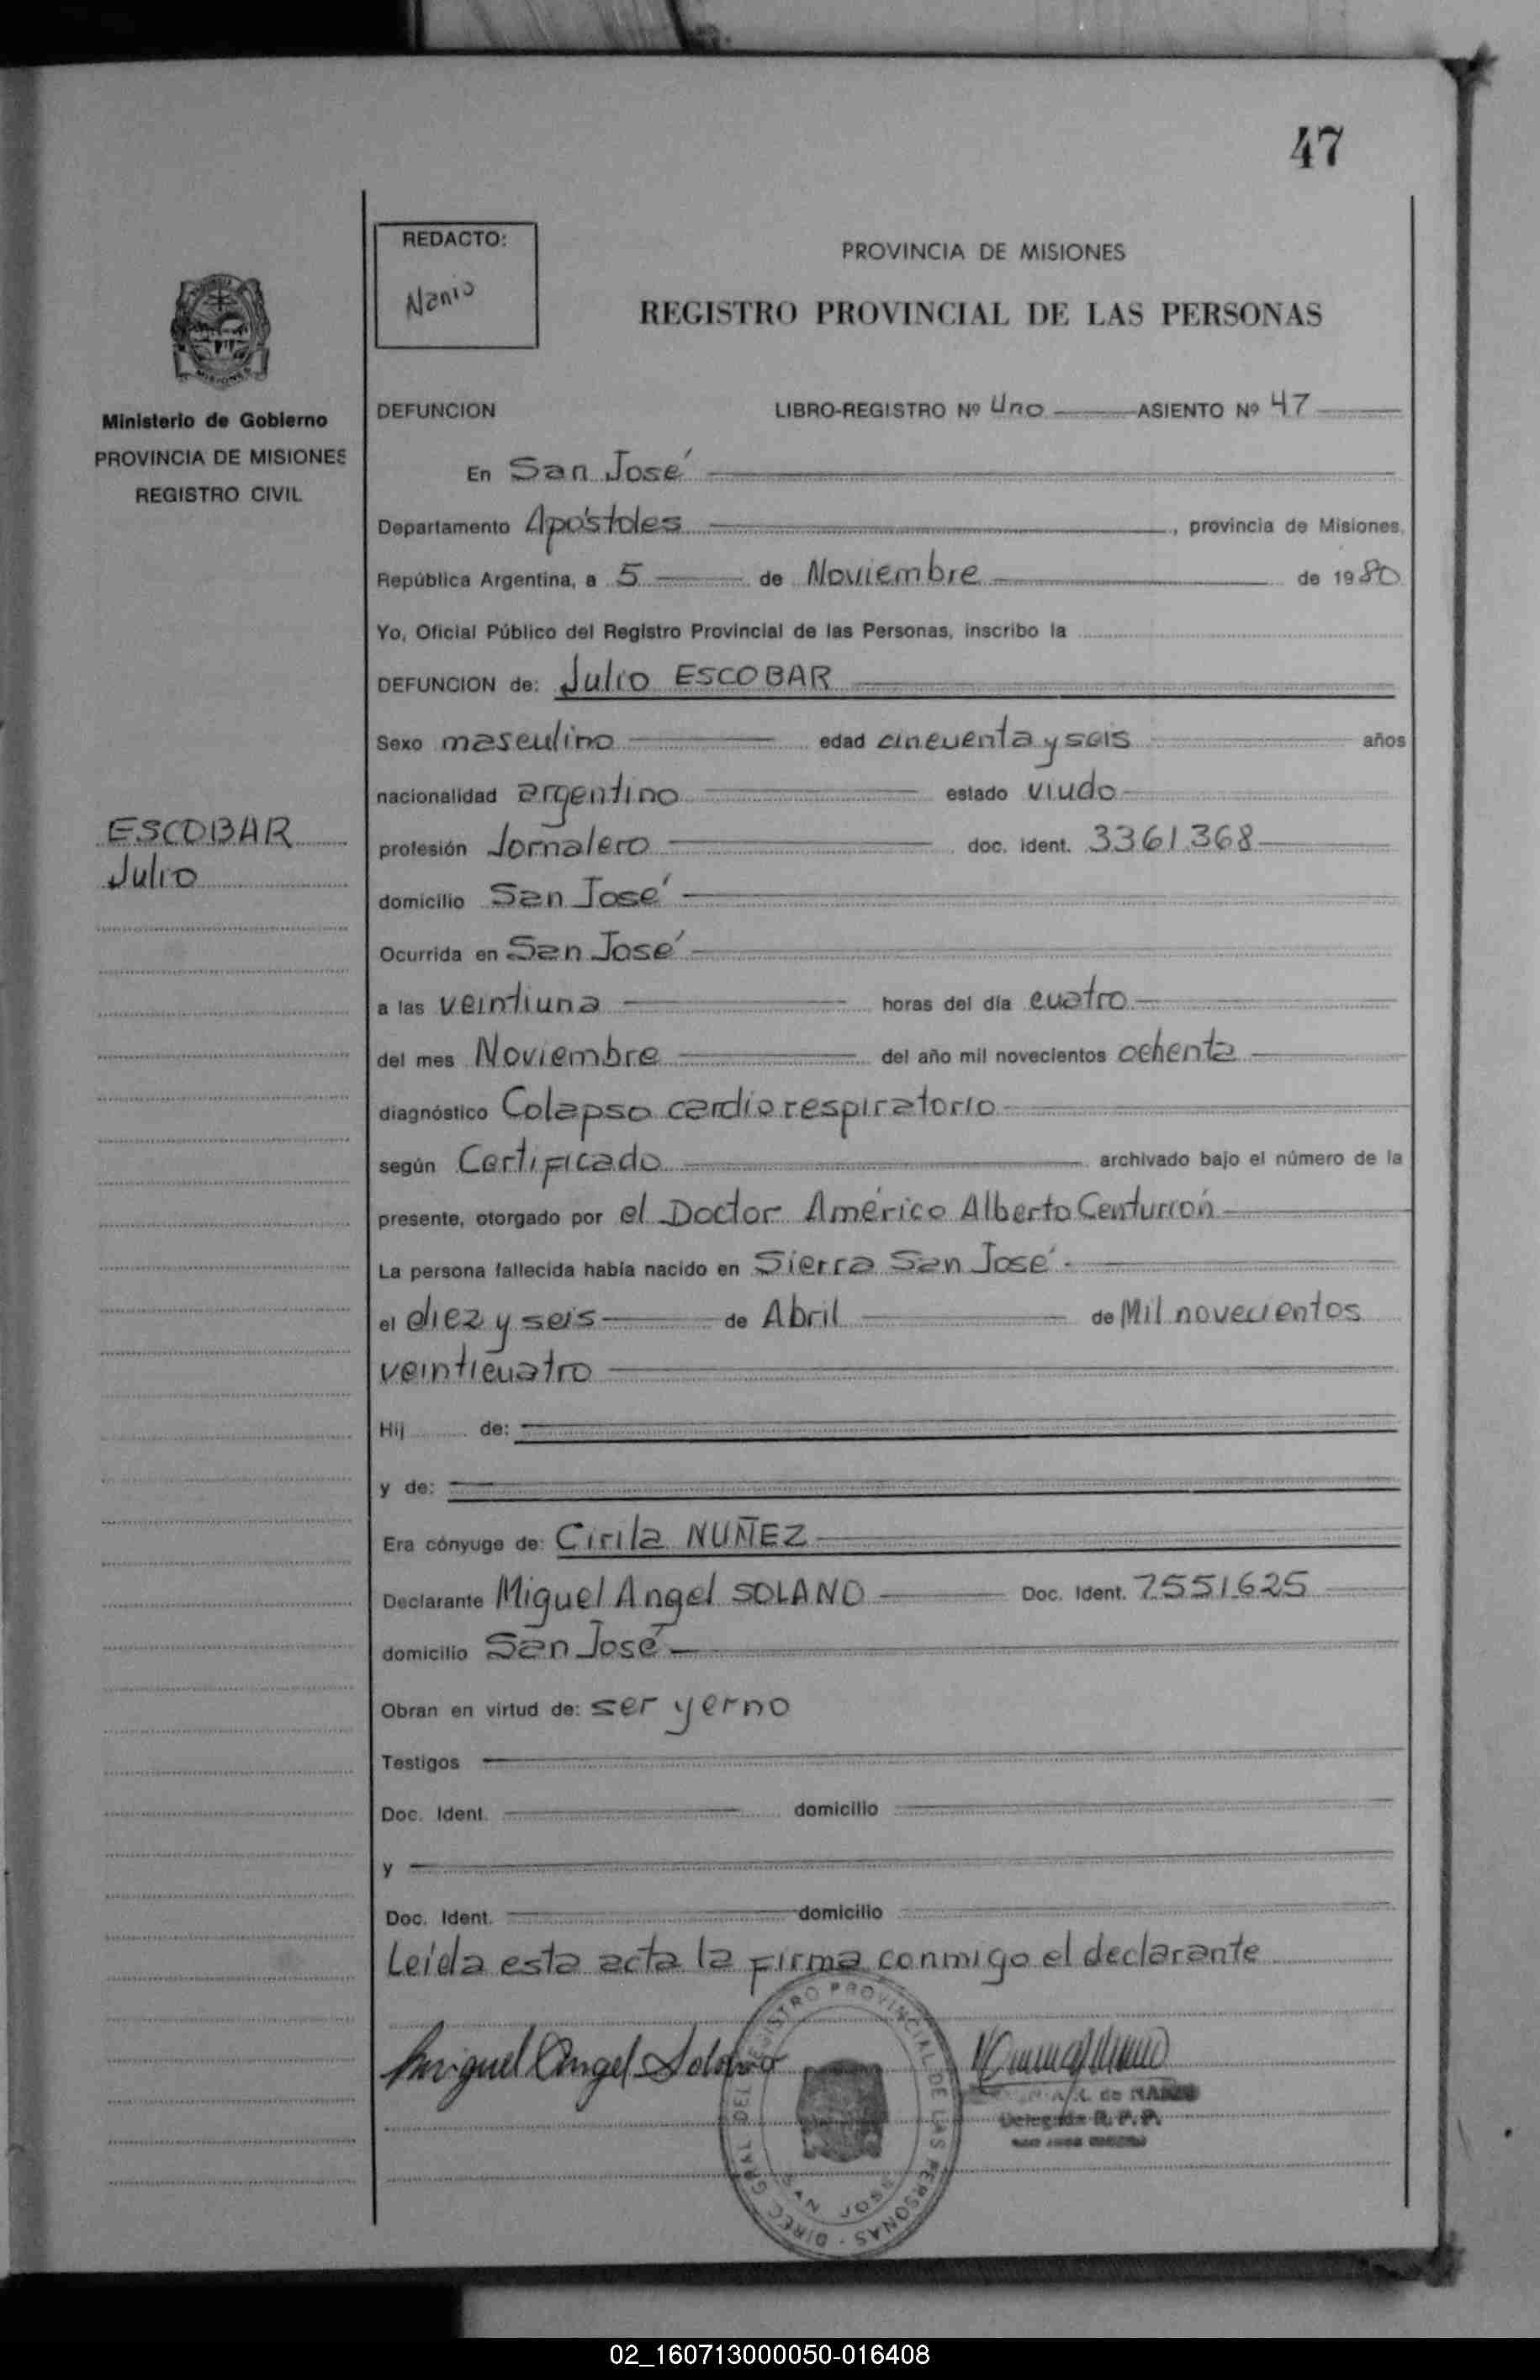 47
REDACTO:
Nanio
PROVINCIA DE MISIONES
REGISTRO PROVINCIAL DE LAS PERSONAS
MISIONES
Ministerio de Gobierno
PROVINCIA DE MISIONES
REGISTRO CIVIL
DEFUNCION LIBRO-REGISTRO Nº Uno ASIENTO Nº 47
En San José
Departamento Apóstoles, provincia de Misiones,
República Argentina, a 5 de Noviembre de 1980
Yo, Oficial Público del Registro Provincial de las Personas, inscribo la
DEFUNCION de: Julio ESCOBAR
Sexo masculino edad cincuenta y seis años
nacionalidad argentino estado viudo
ESCOBAR
Julio
profesión Jornalero doc. ident. 3361.368
domicilio San José
Ocurrida en San José
a las veintiuna horas del día cuatro
del mes Noviembre del año mil novecientos ochenta
diagnóstico Colapso cardio respiratorio
según Certificado archivado bajo el número de la
presente, otorgado por el Doctor Américo Alberto Centurión
La persona fallecida había nacido en Sierra San José
el diez y seis de Abril de Mil novecientos
veinticuatro
Hij de:
y de:
Era cónyuge de: Cirila NUÑEZ
Declarante Miguel Angel SOLANO Doc. Ident. 7.551.625
domicilio San José
Obran en virtud de: ser yerno
Testigos
Doc. Ident. domicilio
y
Doc. Ident. domicilio
Leída esta acta la firma conmigo el declarante
Miguel Angel Solano
DIREC. GRAL. DEL REGISTRO PROVINCIAL DE LAS PERSONAS -
SAN JOSE
de
Delegada R. P. P.
02_160713000050-016408